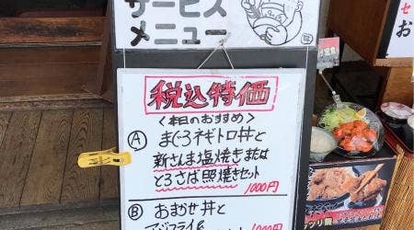 サービス
メニュー
税込特価
＜本日のおすすめ＞
Ⓐ まぐろネギトロ丼と
新さんま塩焼きまたは
とろさば照焼きセット
1000円
Ⓑ おまかせ丼と